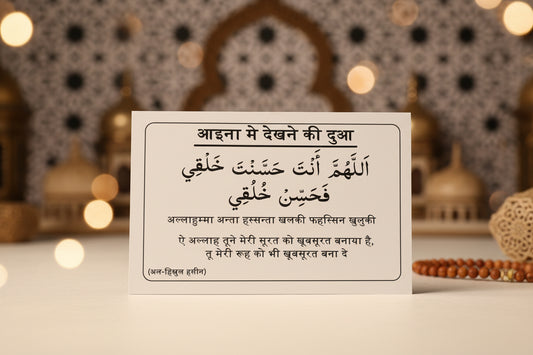 आइना मे देखने की दुआ
اَللَّهُمَّ أَنْتَ حَسَّنْتَ خَلْقِي
فَحَسِّنْ خُلُقِي
अल्लाहुम्मा अन्ता हस्सन्ता खलकी फहस्सिन खुलुकी
ऐ अल्लाह तूने मेरी सूरत को खूबसूरत बनाया है,
तू मेरी रूह को भी खूबसूरत बना दे
(अल-हिस्नुल हसीन)